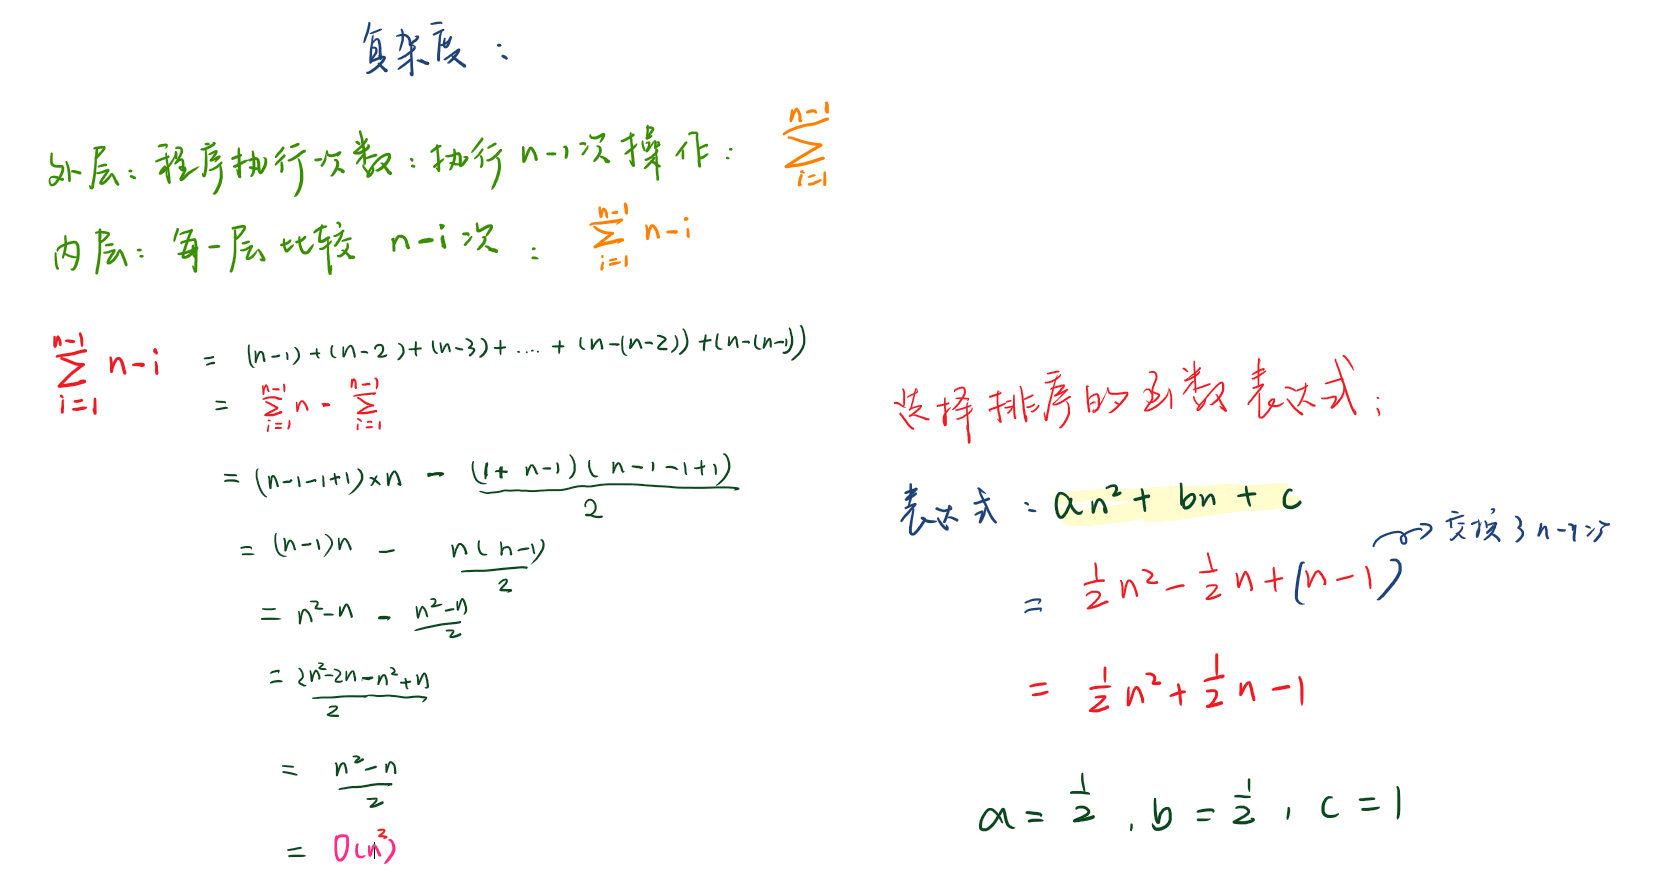 复杂度：
外层：程序执行次数：执行 n-1次操作： \sum_{i=1}^{n-1}
内层：每一层比较 n-i次： \sum_{i=1}^{n-1} n-i
\sum_{i=1}^{n-1} n-i = (n-1)+(n-2)+(n-3)+....+(n-(n-2))+(n-(n-1))
= \sum_{i=1}^{n-1} n - \sum_{i=1}^{n-1}
= (n-1-1+1)×n - \frac{(1+n-1)(n-1-1+1)}{2}
= (n-1)n - \frac{n(n-1)}{2}
= n²-n - \frac{n²-n}{2}
= \frac{2n²-2n-n²+n}{2}
= \frac{n²-n}{2}
= O(n²)
选择排序的函数表达式：
表达式：an²+bn+c
= \frac{1}{2}n² - \frac{1}{2}n+(n-1) → 交换了n-1次
= \frac{1}{2}n²+\frac{1}{2}n-1
a=\frac{1}{2}, b=\frac{1}{2}, c=1